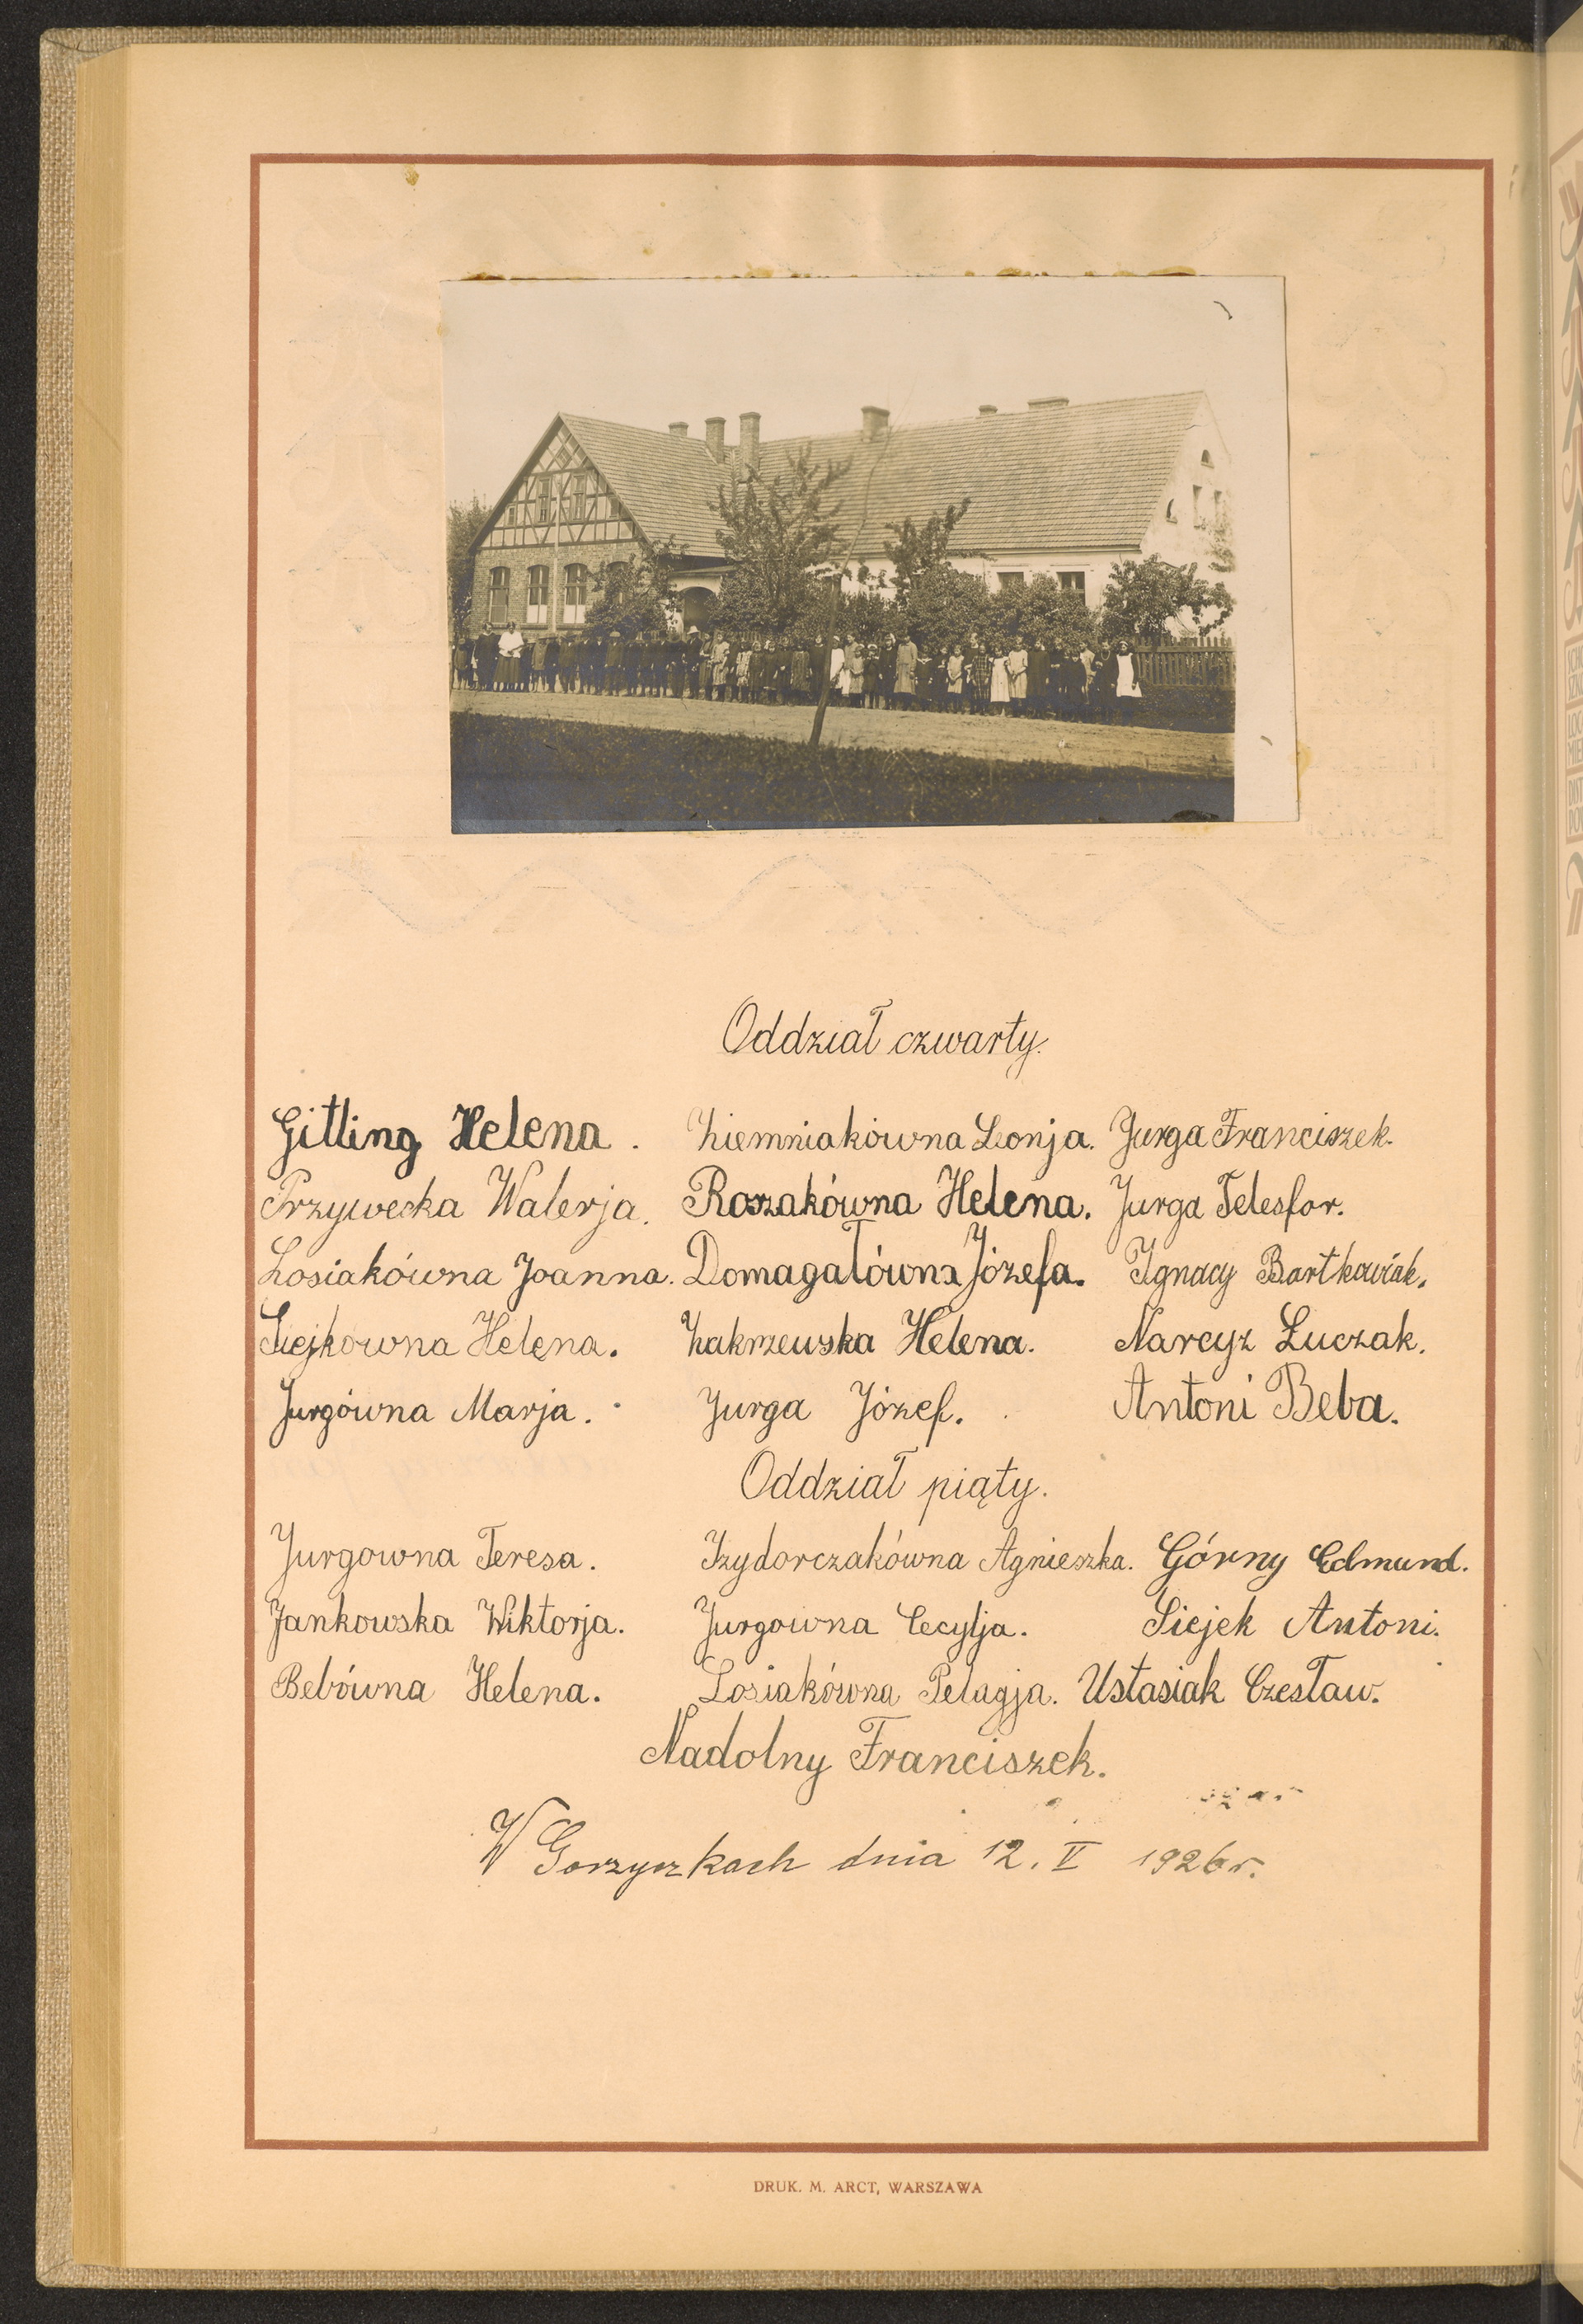 Oddział czwarty.
Gitling Helena. Ziemniakówna Leonja. Jurga Franciszek.
Przywecka Walerja. Roszakówna Helena. Jurga Telesfor.
Łosiakówna Joanna. Domagałówna Józefa. Ignacy Bartkowiak.
Siejkowna Helena. Zakrzewska Helena. Narcyz Łuczak.
Jurgówna Marja. Jurga Józef. Antoni Beba.
Oddział piąty.
Jurgowna Teresa. Izydorczakówna Agnieszka. Górny Edmund.
Jankowska Wiktorja. Jurgowna Cecylja. Siejek Antoni.
Bebówna Helena. Łosiakówna Pelagja. Ustasiak Czesław.
Nadolny Franciszek.
W Gorzyczkach dnia 12. V 1926 r.
DRUK. M. ARCT, WARSZAWA